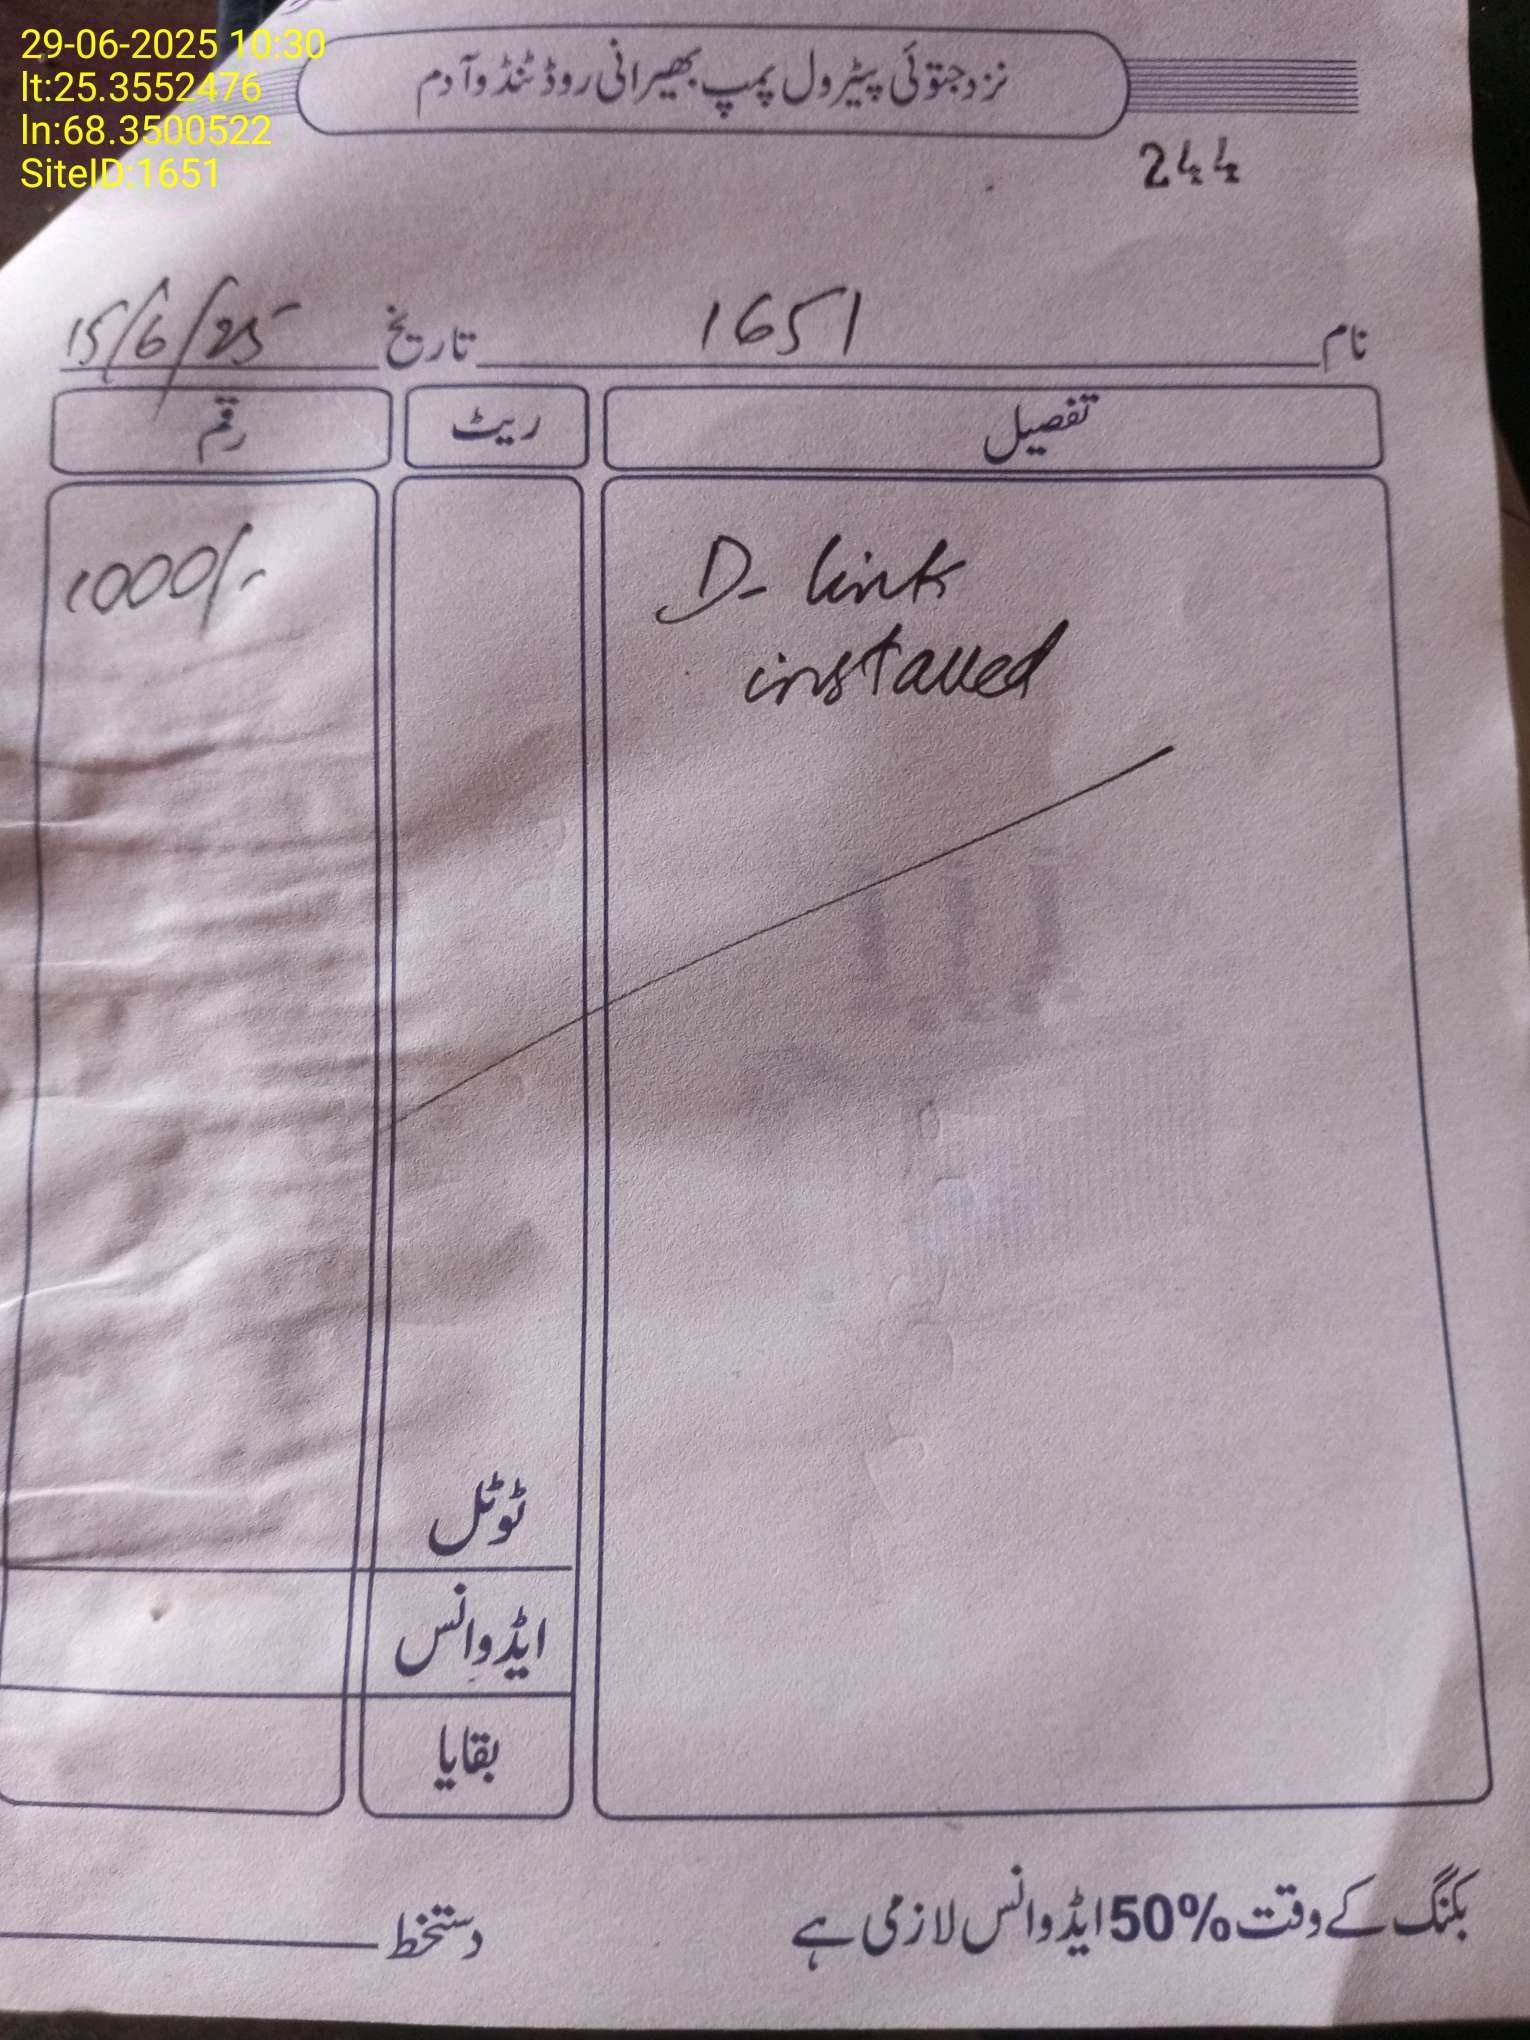 29-06-2025 10:30
lt:25.3552476
ln:68.3500522
SiteID:1651
نزد جتوئی پیٹرول پمپ بھیرانی روڈ ٹنڈوآدم
244
نام 1651 تاریخ 15/6/25
تفصیل ریٹ رقم
D- link 1000/-
installed
ٹوٹل
ایڈوانس
بقایا
بکنگ کے وقت 50% ایڈوانس لازمی ہے
دستخط